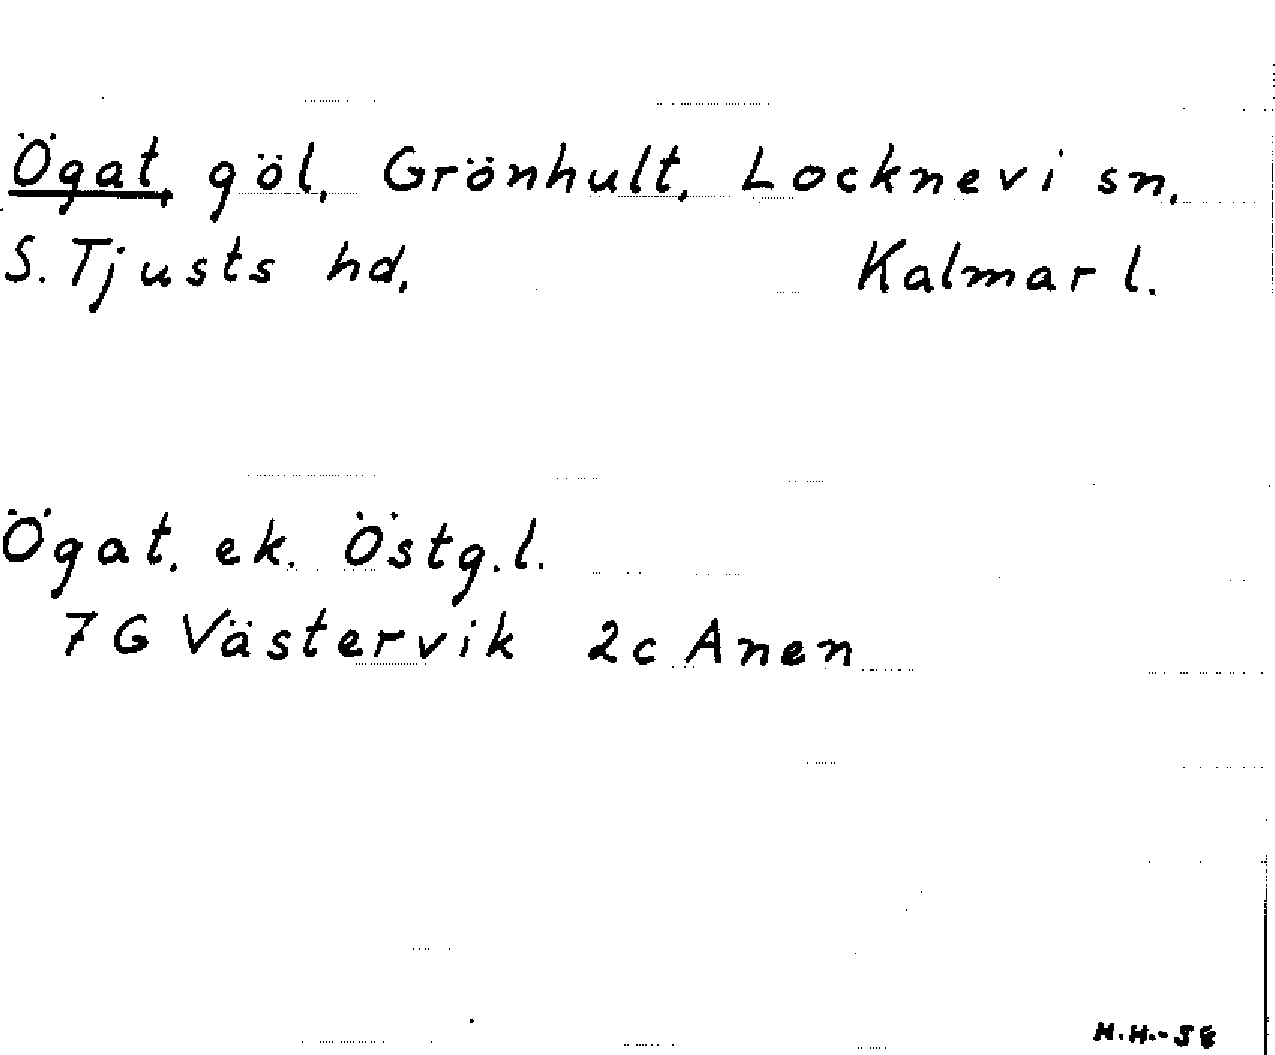 Ögat, göl, Grönhult, Locknevi sn,
S. Tjusts hd, Kalmar l.
Ögat. ek. Östg. l.
7G Västervik 2c Anen